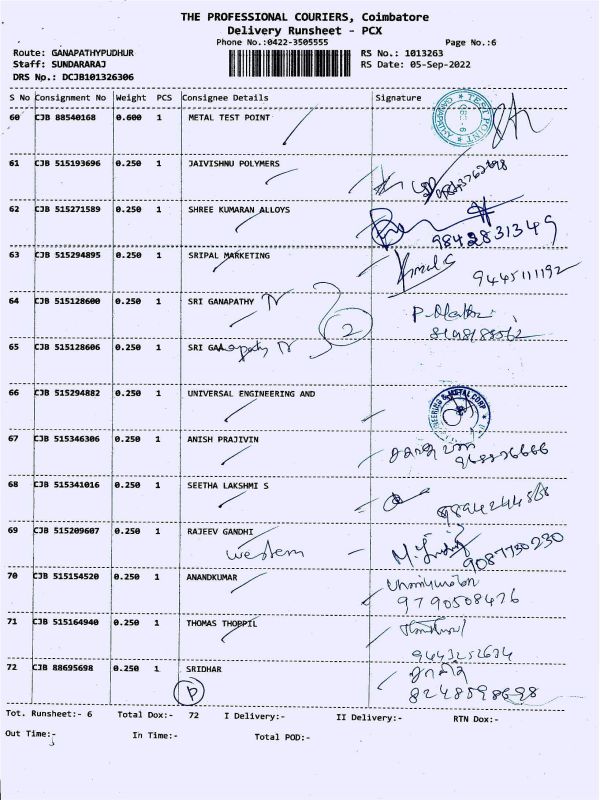 THE PROFESSIONAL COURIERS, Coimbatore
Delivery Runsheet - PCX
Phone No.:0422-3505555 Page No.:6
Route: GANAPATHYPUDHUR RS No.: 1013263
Staff: SUNDARARAJ RS Date: 05-Sep-2022
DRS Np.: DCJB101326306
S No Consignment No Weight PCS Consignee Details Signature
60 CJB 88540168 0.600 1 METAL TEST POINT TEST POINT
61 CJB 515193696 0.250 1 JAIVISHNU POLYMERS
62 CJB 515271589 0.250 1 SHREE KUMARAN ALLOYS 9842831349
63 CJB 515294895 0.250 1 SRIPAL MARKETING 9445111192
64 CJB 515128600 0.250 1 SRI GANAPATHY Tr 2
65 CJB 515128606 0.250 1 SRI GAnapathy Tr
66 CJB 515294882 0.250 1 UNIVERSAL ENGINEERING AND
67 CJB 515346306 0.250 1 ANISH PRAJIVIN
68 CJB 515341016 0.250 1 SEETHA LAKSHMI S
69 CJB 515209607 0.250 1 RAJEEV GANDHI
western 9087730230
70 CJB 515154520 0.250 1 ANANDKUMAR
9790508476
71 CJB 515164940 0.250 1 THOMAS THOPPIL
9443252634
72 CJB 88695698 0.250 1 SRIDHAR
P 8248598698
Tot. Runsheet:- 6 Total Dox:- 72 I Delivery:- II Delivery:- RTN Dox:-
Out Time:- In Time:- Total POD:-